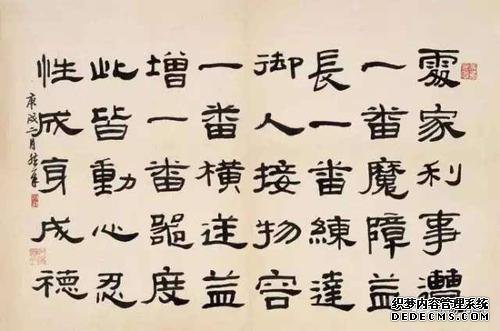 處家利事遭
一番魔障益
長一番練達
御人接物容
一番橫逆益
增一番器度
此皆動心忍
性成身成德
庚戌
织梦内容管理系统
DEDECMS.COM